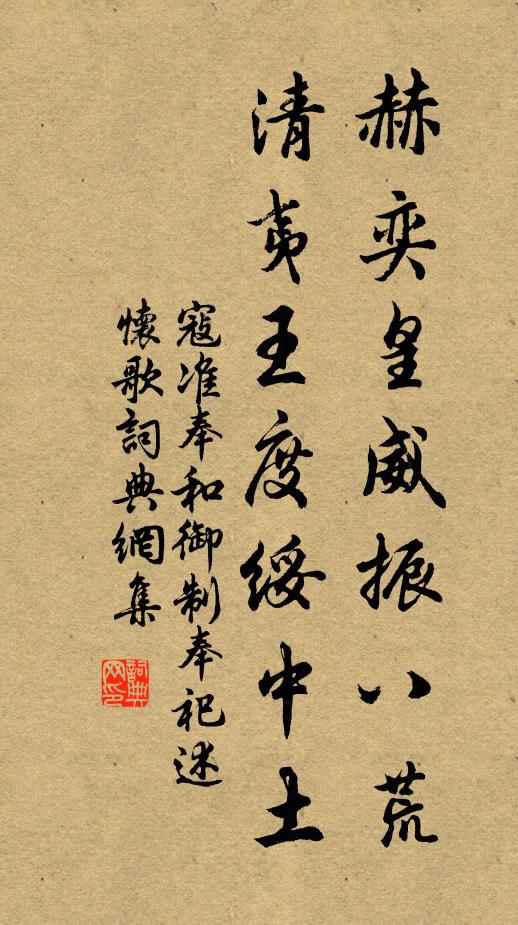 赫奕皇威振八荒
清夷王度綏中土
寇准奉和御制奉祀述
懷歌詞典網集
詞典
网印